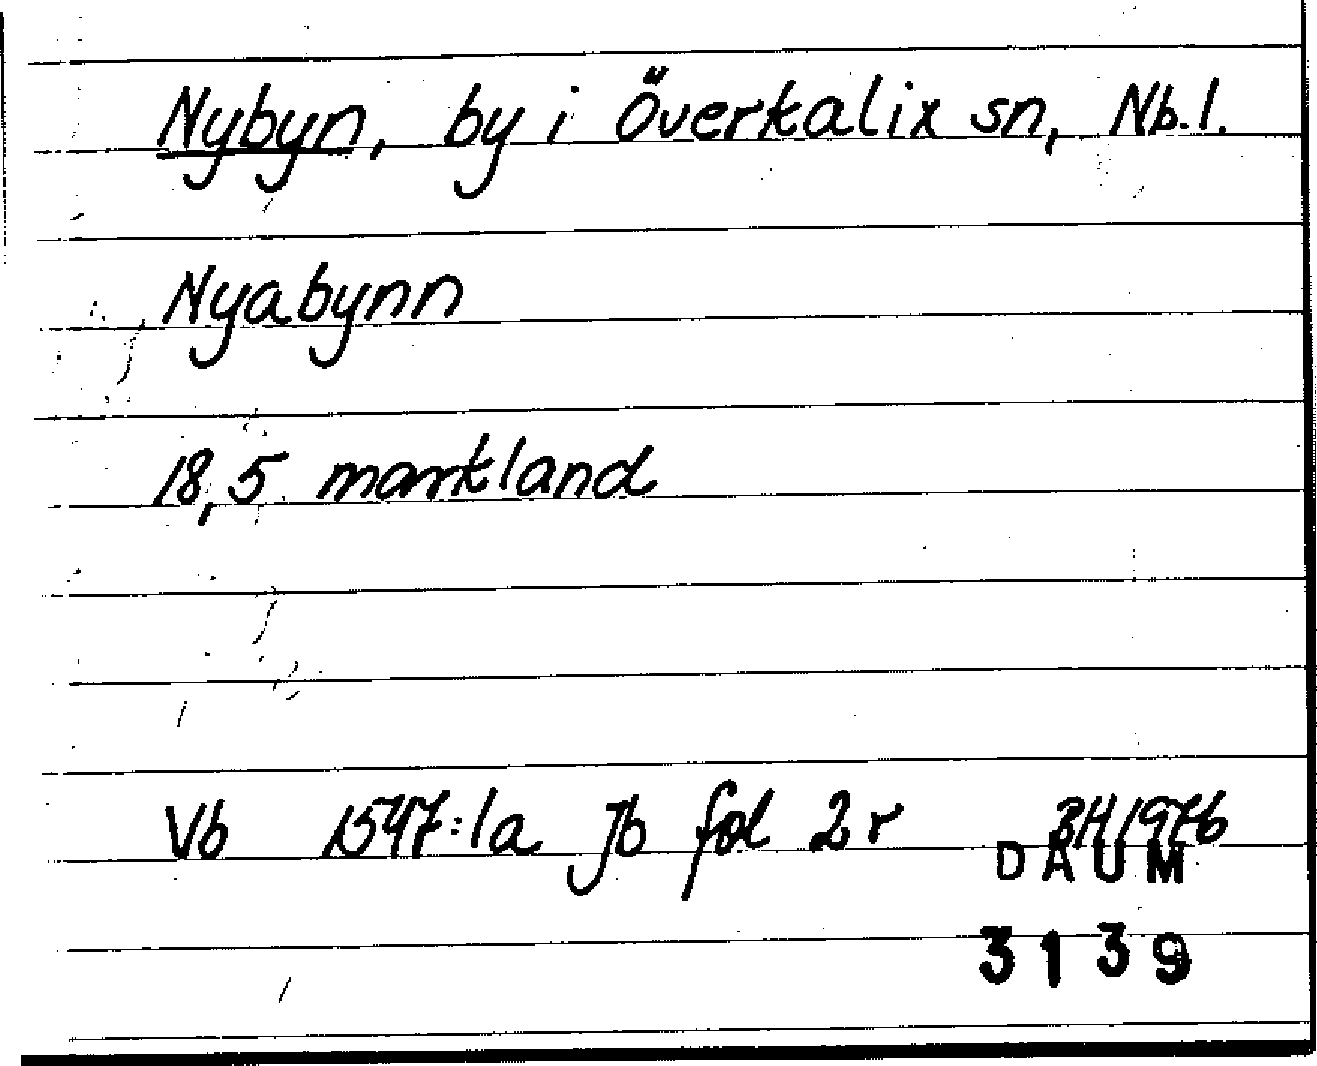 Nybyn, by i Överkalix sn, Nb.l.
Nyabynn
18,5 markland
Vb 1547:1a Jb fol 2 r BH 1976
DAUM
3139